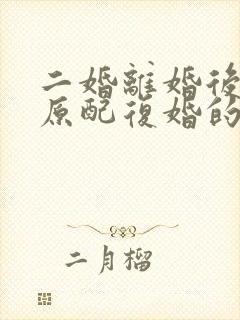 二婚離婚後
原配復婚的
二月榴